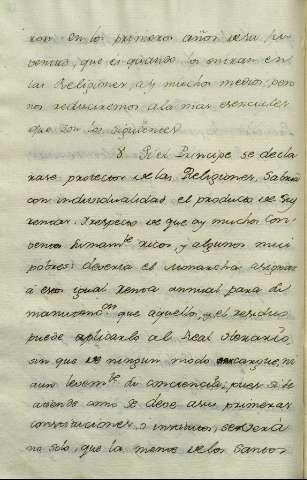 ron en los primeros años de su ju
ventud, que es quando los entran en
las Religiones, ay muchos medios, pero
nos reduciremos a la mas esenciales
que son los siguientes
8. Si el Principe se decla
rase protector de las Religiones, Sabria
con individualidad el producto de sus
rentas. Y respecto de que ay muchos Con
ventos sumam.te ricos, y algunos mui
pobres: deveria el Monarcha asignar
a estos igual Renta annual para su
manutens.on que aquellos, y el residuo
puede aplicarlo al Real Herario,
sin que de ningun modo encargue, ni
aun levem.te su conciencia, pues si se
atiende como se debe a sus primeras
constituciones, o institutos, se verá
no solo, que la mente de los Santos